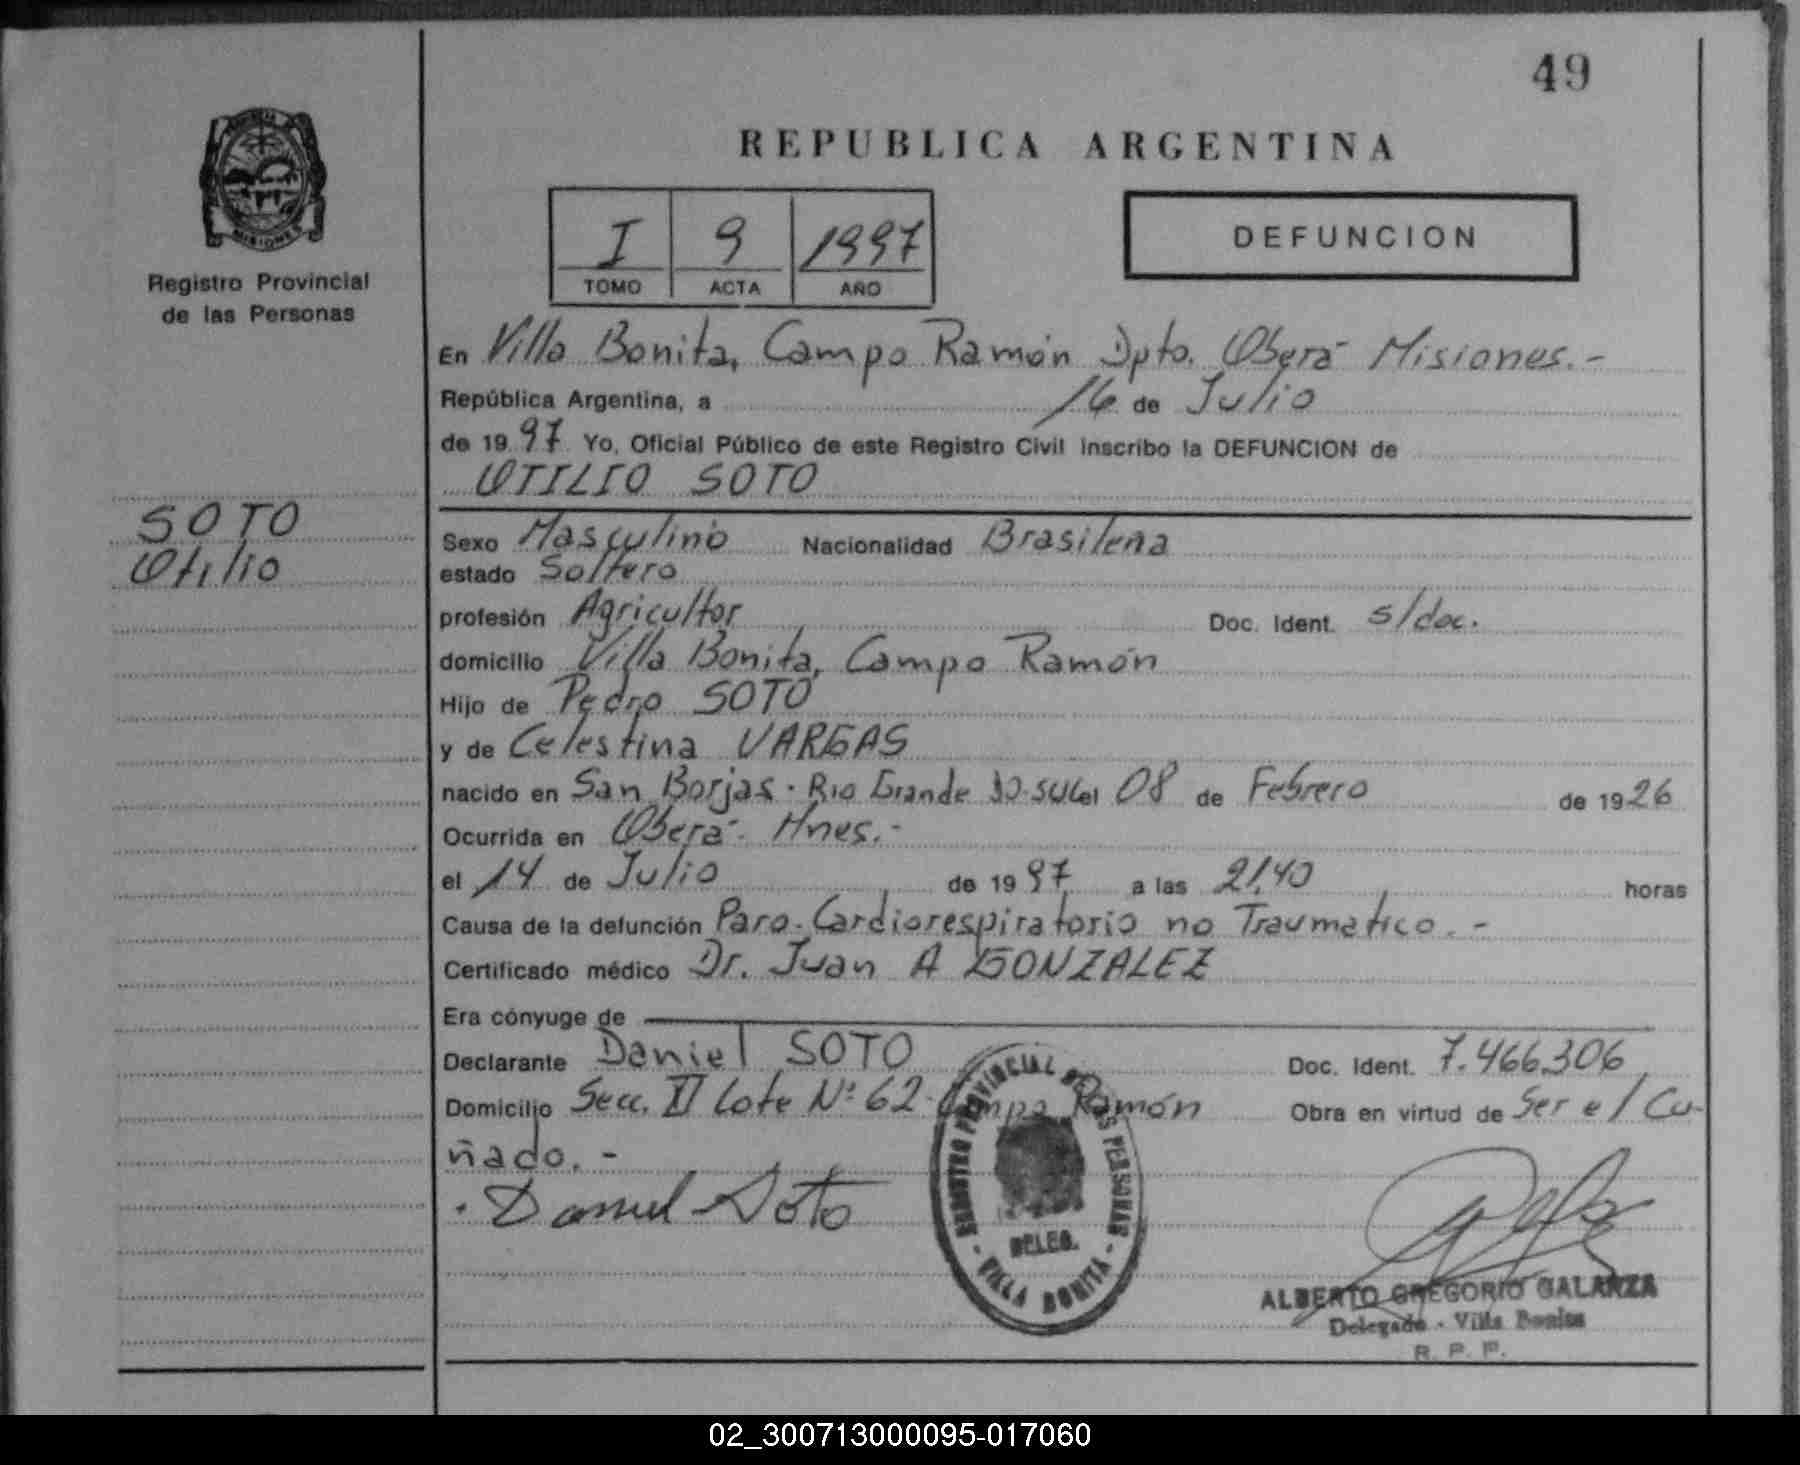 49
REPUBLICA ARGENTINA
MISIONES
Registro Provincial
de las Personas
I 9 1997
TOMO ACTA AÑO
DEFUNCION
En Villa Bonita, Campo Ramón Dpto. Oberá Misiones.-
República Argentina, a 16 de Julio
de 19 97 Yo, Oficial Público de este Registro Civil inscribo la DEFUNCION de
OTILIO SOTO
SOTO
Otilio
Sexo Masculino Nacionalidad Brasileña
estado Soltero
profesión Agricultor Doc. Ident. s/doc.
domicilio Villa Bonita, Campo Ramón
Hijo de Pedro SOTO
y de Celestina VARGAS
nacido en San Borjas. Rio Grande do sul el 08 de Febrero de 19 26
Ocurrida en Oberá- Mnes.-
el 14 de Julio de 19 97 a las 21,40 horas
Causa de la defunción Paro-Cardiorespiratorio no Traumatico.-
Certificado médico Dr. Juan A GONZALEZ
Era cónyuge de
Declarante Daniel SOTO Doc. Ident. 7.466.306
Domicilio Secc. II Lote Nº 62- Campo Ramón Obra en virtud de Ser el Cu-
ñado.-
Daniel Soto
REGISTRO PROVINCIAL DE LAS PERSONAS
DELEG.
- VILLA BONITA -
ALBERTO GREGORIO GALARZA
Delegado - Villa Bonita
R. P. P.
02_300713000095-017060